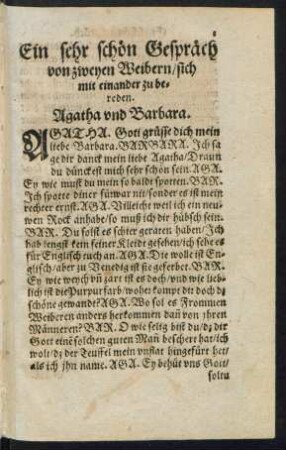 Ein sehr schön Gespräch
von zweyen Weibern/sich
mit einander zu be-
reden.
Agatha vnd Barbara.
AGATHA. Gott grüsse dich mein
liebe Barbara. BARBARA. Ich sa
ge dir danck mein liebe Agatha/Draun
du dünckest mich sehr schön sein. AGA.
Ey wie must du mein so baldt spotten. BAR.
Ich spotte diner fürwar nit/sonder es ist mein
rechter ernst. AGA. Villeicht weil ich ein neu-
wen Rock anhabe/so muß ich dir hübsch sein.
BAR. Du solst es schier geraten haben/Ich
hab lengst kein feiner Kleidt gesehen/ich sehe es
für Englisch tuch an. AGA. Die wolle ist En-
glisch/aber zu Venedig ist sie geferbet. BAR.
Ey wie weych vñ zart ist es doch/vnd wie lieb-
lich ist die Purpur farb/woher kompt dir doch dz
schöne gewandt? AGA. Wo sol es Frommen
Weiberen anders herkommen dañ von jhren
Männeren? BAR. O wie selig bist du/dz dir
Gott einẽ solchen guten Mañ beschert hat/ich
wolt/dz der Teuffel mein vnflat hingefürt het/
als ich jhn name. AGA. Ey behüt vns Gott/